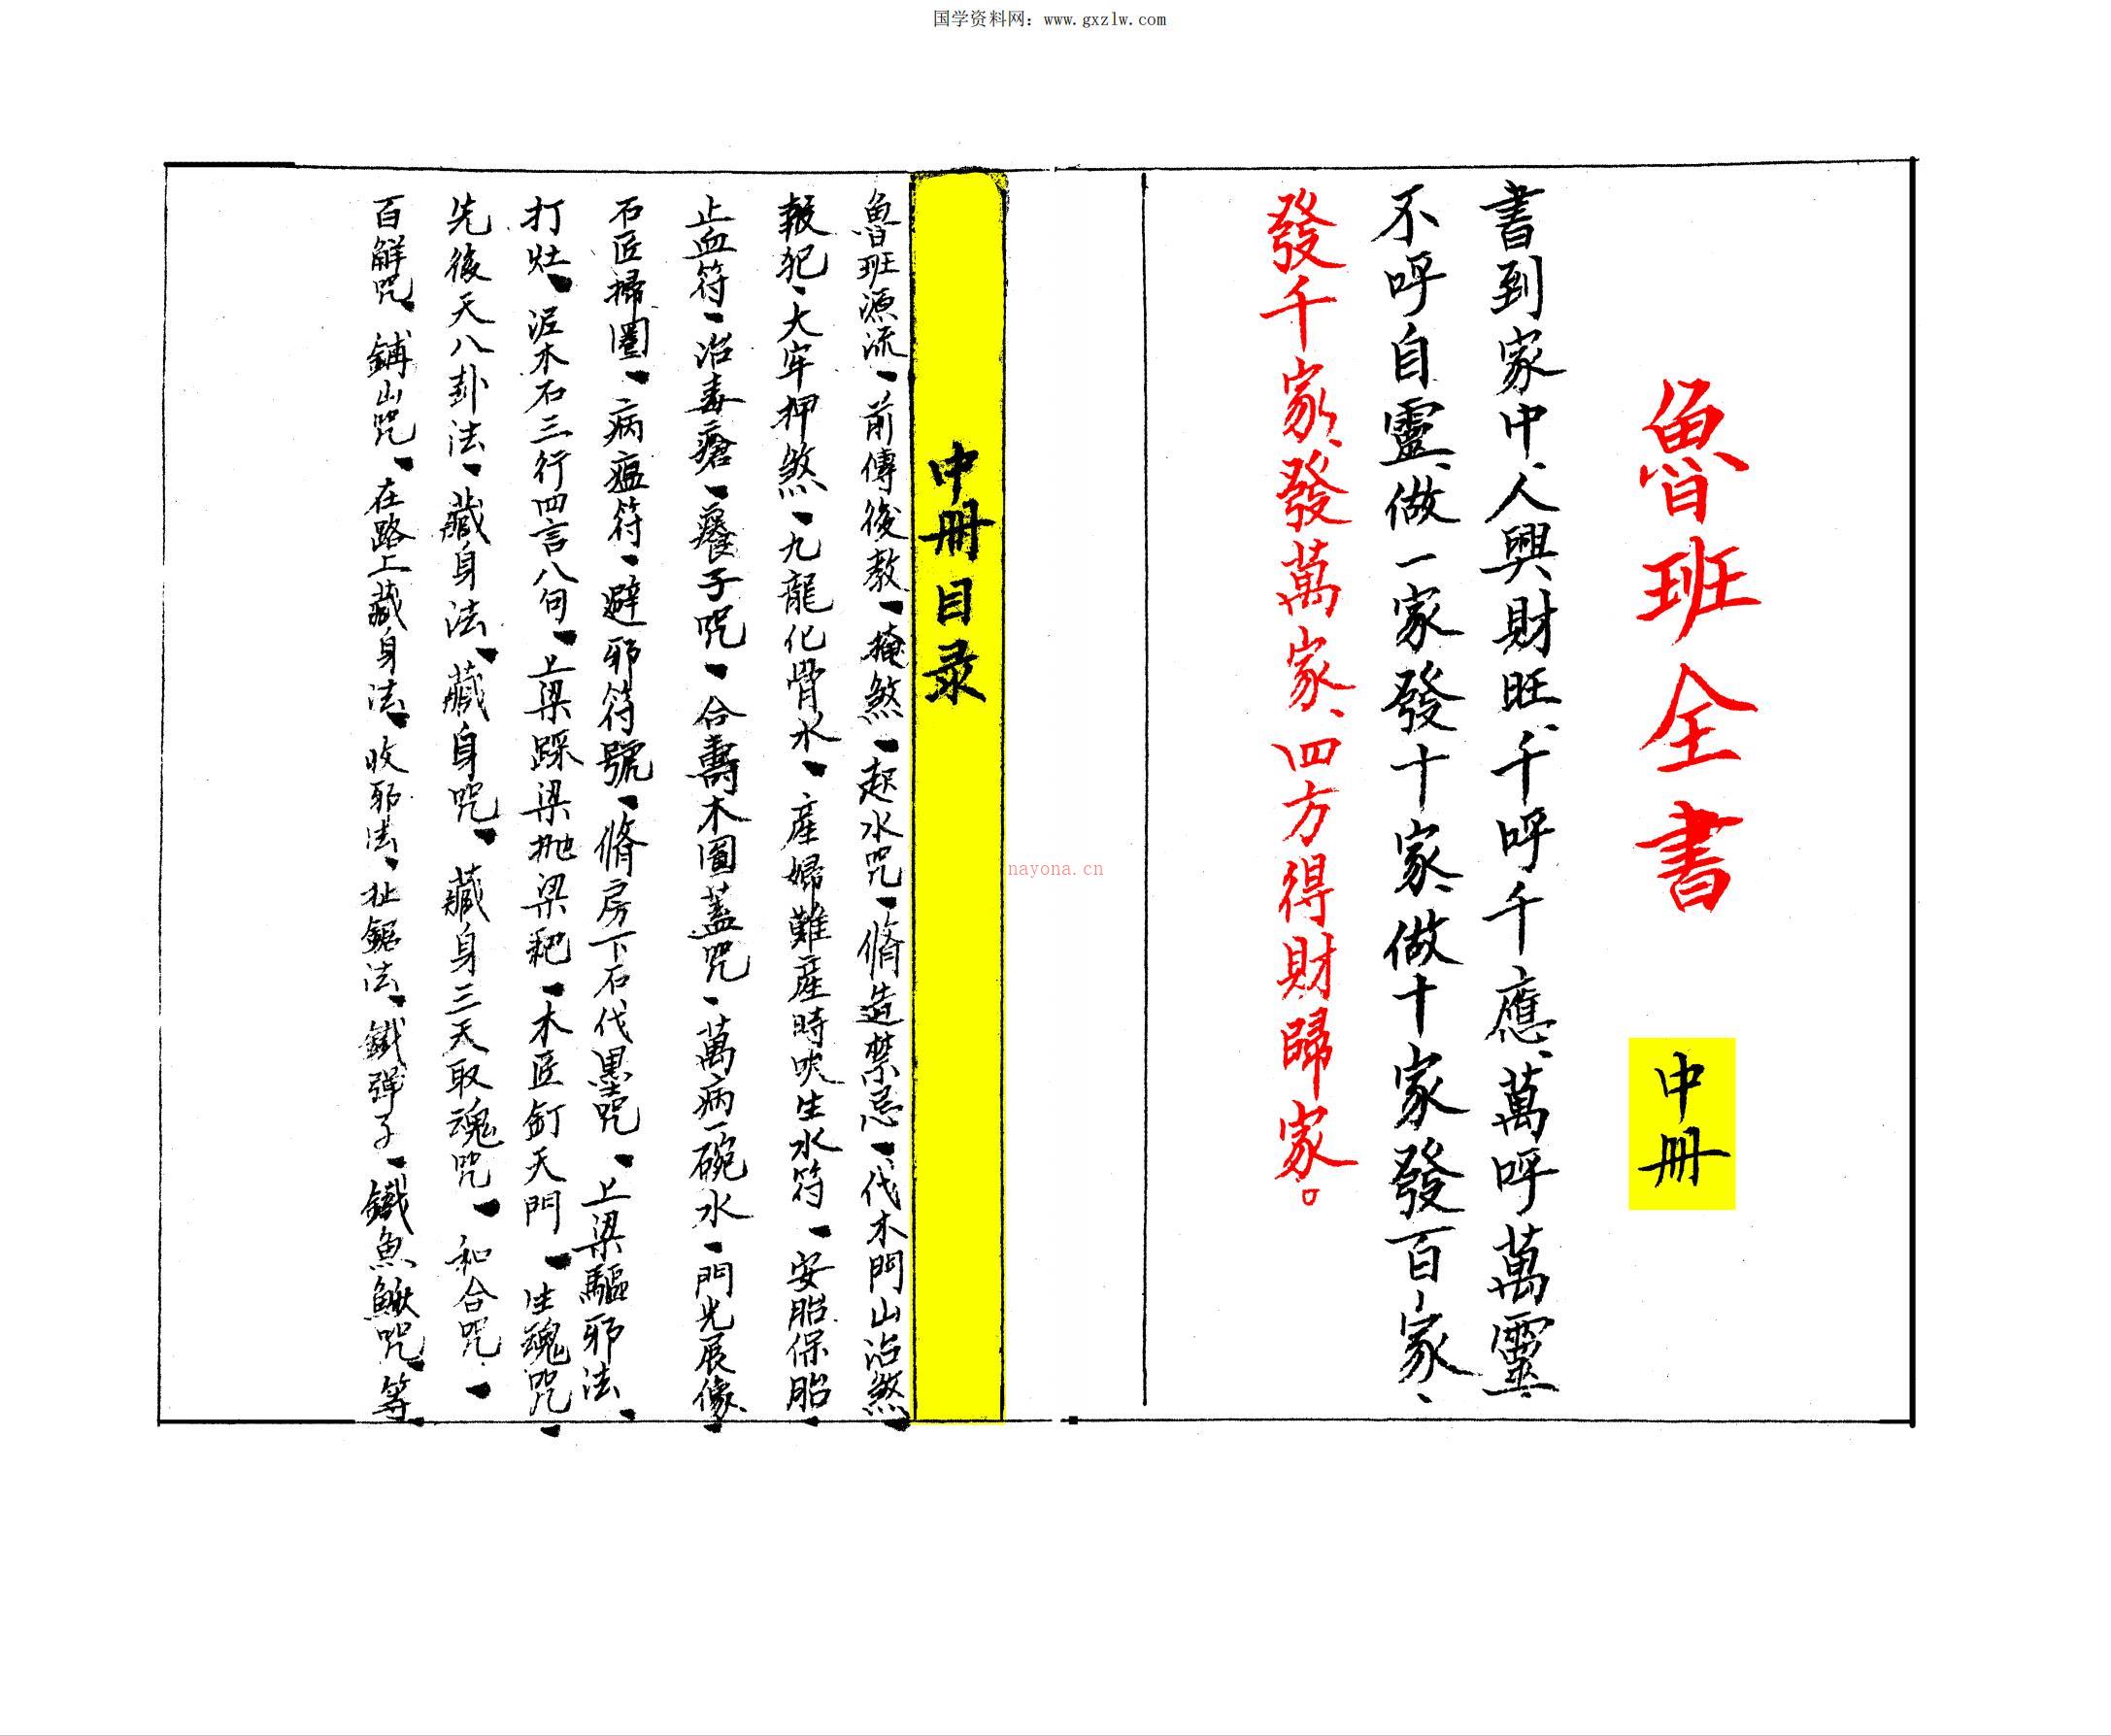 国学资料网：www.gxzlw.com
魯班全書
中冊
書到家中、人興財旺、千呼千應、萬呼萬靈、
不呼自靈、做一家發十家、做十家發百家、
發千家、發萬家、四方得財歸家。
nayona.cn
中冊目录
魯班源流、前傳後教、掩煞、起水咒、脩造禁忌、伐木門山治煞、
報犯、大牢押煞、九龍化骨水、産婦難産時吹生水符、安胎保胎、
止血符、治毒瘡、癢子咒、合壽木圓蓋咒、萬病一碗水、門光展像、
石匠掃圈、病瘟符、避邪符號、脩房下石代墨咒、上梁驅邪法、
打灶、泥木石三行四言八句、上梁踩梁抛梁粑、木匠釘天門、生魂咒、
先後天八卦法、藏身法、藏身咒、藏身三天取魂咒、和合咒、
百解咒、鋪山咒、在路上藏身法、收邪法、扯鋸法、鐵彈子、鐵魚鰍咒、等、